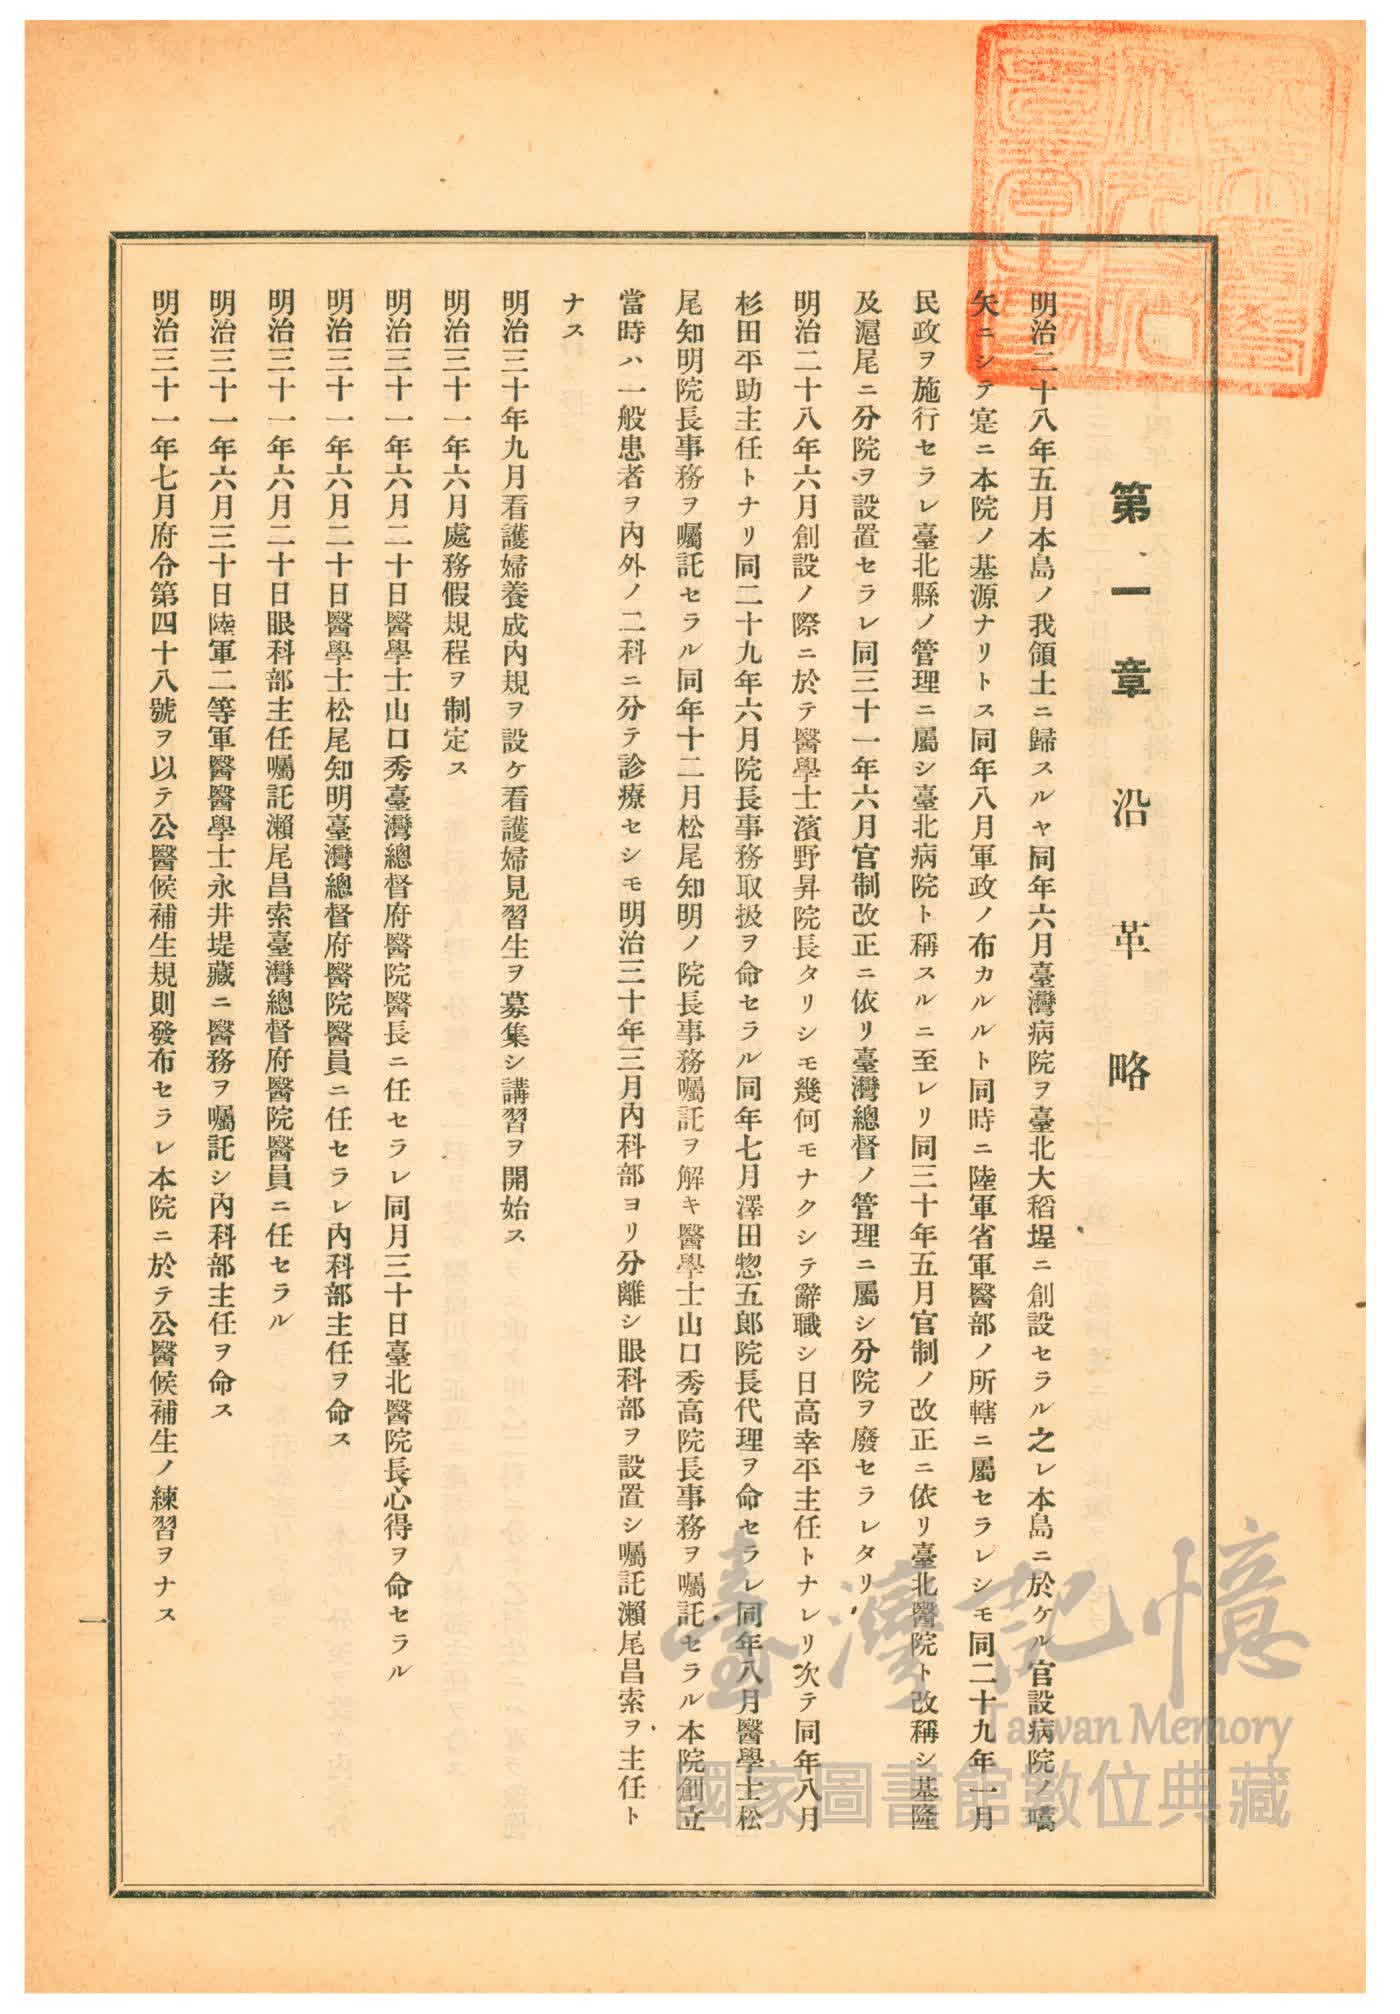 第一章 沿革略
明治二十八年五月本島ノ我領土ニ歸スルヤ同年六月臺灣病院ヲ臺北大稻埕ニ創設セラル之レ本島ニ於ケル官設病院ノ嚆
矢ニシテ寔ニ本院ノ基源ナリトス同年八月軍政ノ布カルルト同時ニ陸軍省軍醫部ノ所轄ニ屬セラレシモ同二十九年一月
民政ヲ施行セラレ臺北縣ノ管理ニ屬シ臺北病院ト稱スルニ至レリ同三十年五月官制ノ改正ニ依リ臺北醫院ト改稱シ基隆
及滬尾ニ分院ヲ設置セラレ同三十一年六月官制改正ニ依リ臺灣總督ノ管理ニ屬シ分院ヲ廢セラレタリ
明治二十八年六月創設ノ際ニ於テ醫學士濱野昇院長タリシモ幾何モナクシテ辭職シ日高幸平主任トナレリ次テ同年八月
杉田平助主任トナリ同二十九年六月院長事務取扱ヲ命セラル同年七月澤田惣五郎院長代理ヲ命セラレ同年八月醫學士松
尾知明院長事務ヲ囑託セラル同年十二月松尾知明ノ院長事務囑託ヲ解キ醫學士山口秀高院長事務ヲ囑託セラル本院創立
當時ハ一般患者ヲ內外ノ二科ニ分テ診療セシモ明治三十年三月內科部ヨリ分離シ眼科部ヲ設置シ囑託瀨尾昌索ヲ主任ト
ナス
明治三十年九月看護婦養成內規ヲ設ケ看護婦見習生ヲ募集シ講習ヲ開始ス
明治三十一年六月處務假規程ヲ制定ス
明治三十一年六月二十日醫學士山口秀臺灣總督府醫院醫長ニ任セラレ同月三十日臺北醫院長心得ヲ命セラル
明治三十一年六月二十日醫學士松尾知明臺灣總督府醫院醫員ニ任セラレ內科部主任ヲ命ス
明治三十一年六月二十日眼科部主任囑託瀨尾昌索臺灣總督府醫院醫員ニ任セラル
明治三十一年六月三十日陸軍二等軍醫醫學士永井堤藏ニ醫務ヲ囑託シ內科部主任ヲ命ス
明治三十一年七月府令第四十八號ヲ以テ公醫候補生規則發布セラレ本院ニ於テ公醫候補生ノ練習ヲナス
一
臺灣記憶
Taiwan Memory
國家圖書館數位典藏